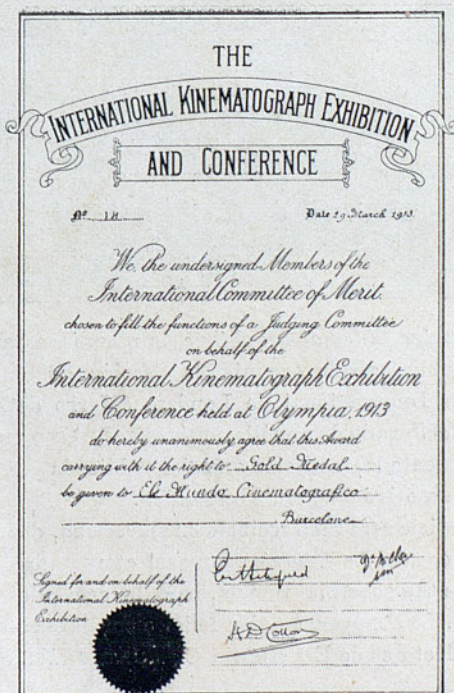 THE
INTERNATIONAL KINEMATOGRAPH EXHIBITION
AND CONFERENCE
No 18 Date 29 March 1913.
We, the undersigned Members of the
International Committee of Merit.
chosen to fill the functions of a Judging Committee
on behalf of the
International Kinematograph Exhibition
and Conference held at Olympia, 1913
do hereby unanimously agree that this Award
carrying with it the right to Gold Medal
be given to Ele Mundo Cinematografico
Barcelone
Signed for and on behalf of the
International Kinematograph
Exhibition